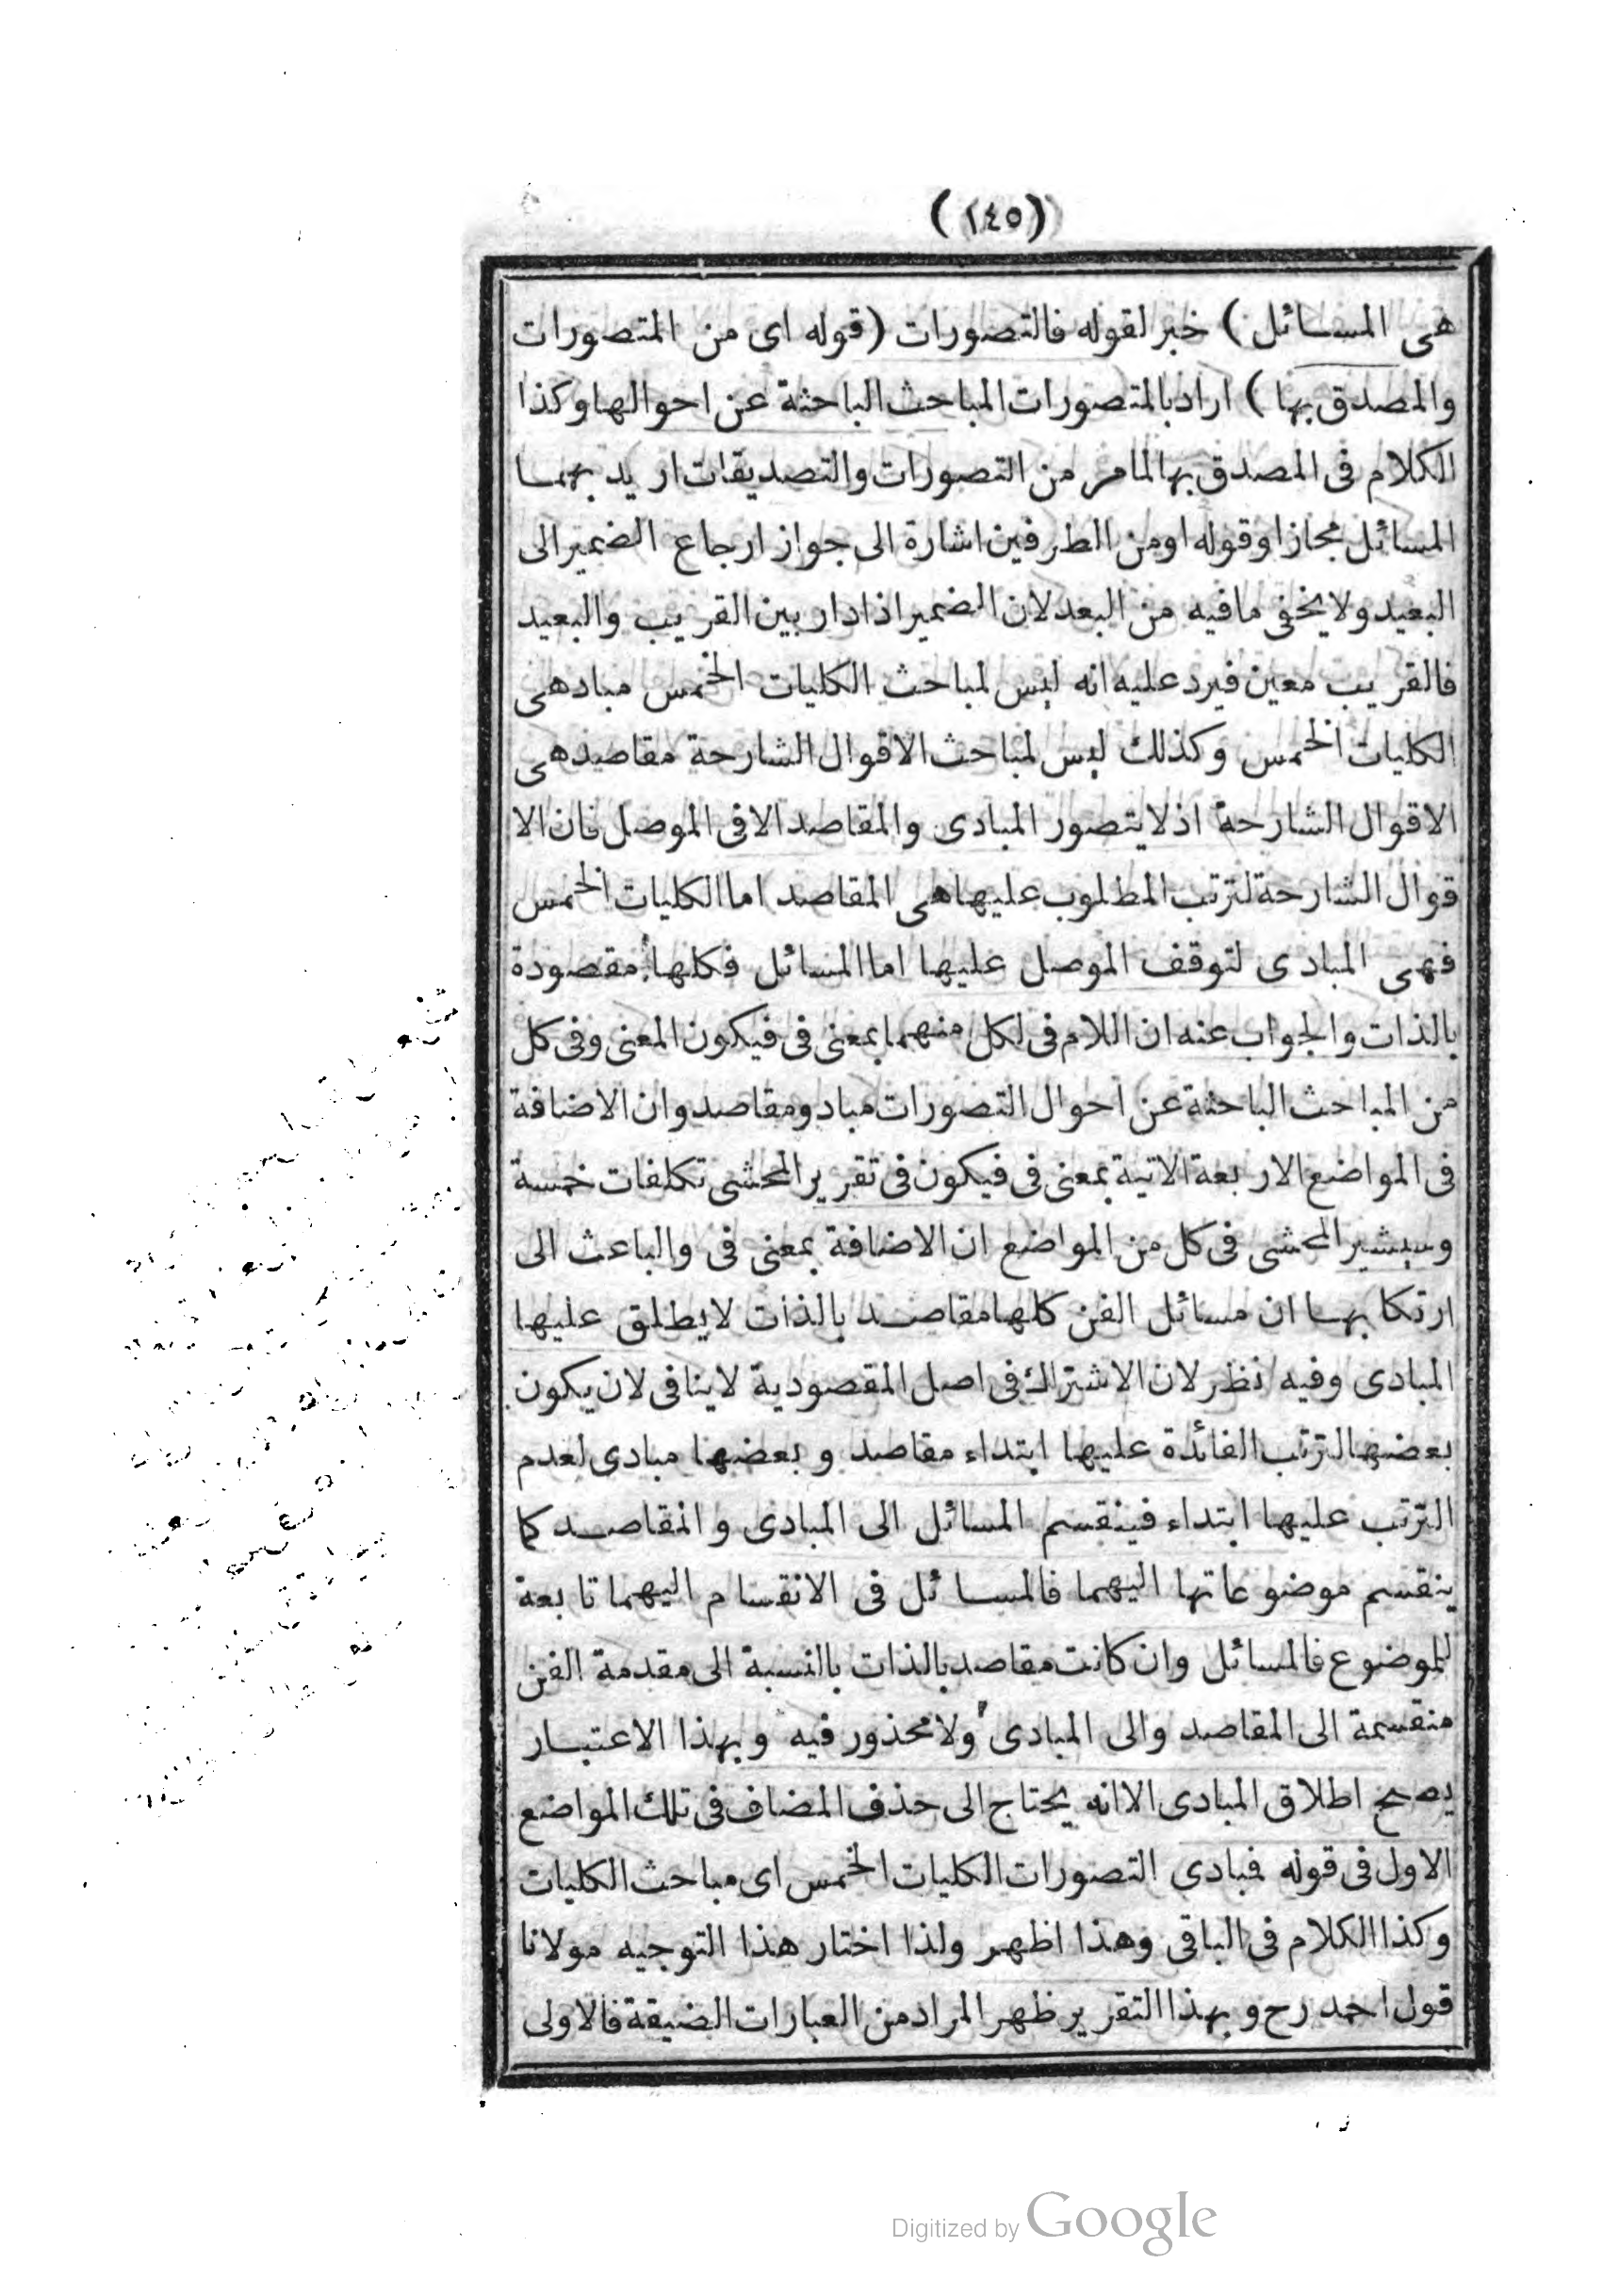 (١٤٥)
هى المسائل) خبر لقوله فالتصورات (قوله اى من المتصورات
والمصدق بها) اراد بالمتصورات المباحث الباحثة عن احوالها وكذا
الكلام فى المصدق بها لما مر من التصورات والتصديقات اريد بهما
المسائل مجازا وقوله او من الطرفين اشارة الى جواز ارجاع الضمير الى
البعيد ولا يخفى ما فيه من البعد لان الضمير اذا دار بين القريب والبعيد
فالقريب معين فيرد عليه انه ليس لمباحث الكليات الخمس مباد هى
الكليات الخمس وكذلك ليس لمباحث الاقوال الشارحة مقاصد هى
الاقوال الشارحة اذ لا يتصور المبادى والمقاصد الا فى الموصل فان الا
قوال الشارحة لترتب المطلوب عليها هى المقاصد اما الكليات الخمس
فهى المبادى لتوقف الموصل عليها اما المسائل فكلها مقصودة
بالذات والجواب عنه ان اللام فى لكل منهما بمعنى فى فيكون المعنى وفى كل
من المباحث الباحثة عن احوال التصورات مباد ومقاصد وان الاضافة
فى المواضع الاربعة الاتية بمعنى فى فيكون فى تقرير المحشى تكلفات خمسة
وسيشير المحشى فى كل من المواضع ان الاضافة بمعنى فى والباعث الى
ارتكابها ان مسائل الفن كلها مقاصد بالذات لا يطلق عليها
المبادى وفيه نظر لان الاشتراك فى اصل المقصودية لا ينافى لان يكون
بعضها لترتب الفائدة عليها ابتداء مقاصد وبعضها مبادى لعدم
الترتب عليها ابتداء فينقسم المسائل الى المبادى والمقاصد كما
ينقسم موضوعاتها اليهما فالمسائل فى الانقسام اليهما تابعة
للموضوع فالمسائل وان كانت مقاصد بالذات بالنسبة الى مقدمة الفن
منقسمة الى المقاصد والى المبادى ولا محذور فيه وبهذا الاعتبار
يصح اطلاق المبادى الا انه يحتاج الى حذف المضاف فى تلك المواضع
الاول فى قوله فبادى التصورات الكليات الخمس اى مباحث الكليات
وكذا الكلام فى الباقى وهذا اظهر ولذا اختار هذا التوجيه مولانا
قول احمد رح وبهذا التقرير ظهر المراد من العبارات الضيقة فالاولى
Digitized by Google